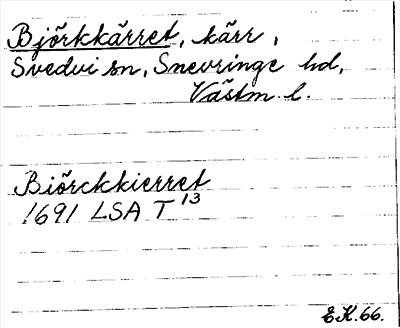 Björkkärret, kärr,
Svedvi sn, Snevringe hd,
Västm. l.
Biörckkierret
1691 LSA T 13
E.K. 66.